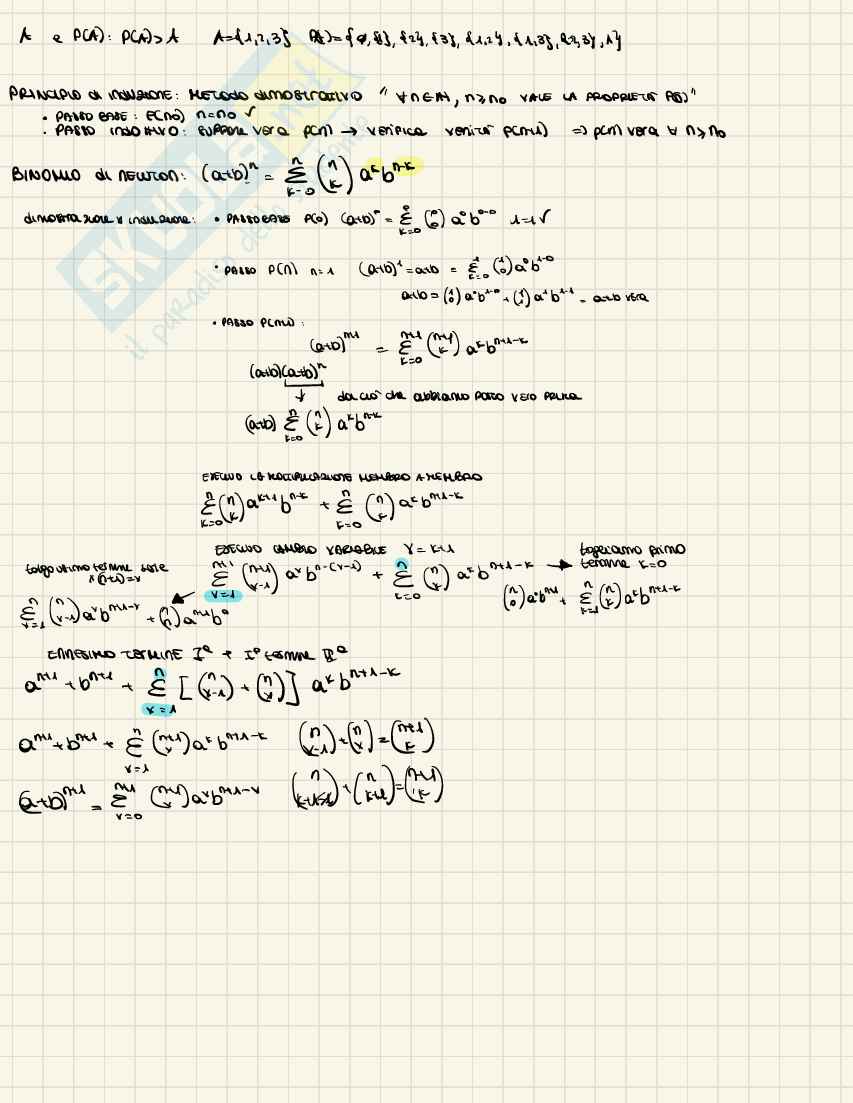 A e P(A): P(A)>A A={1,2,3} P(A)={∅,{1},{2},{3},{1,2},{1,3},{2,3},A}
PRINCIPIO di INDUZIONE: METODO DIMOSTRATIVO "∀n∈ℕ, n≥n0 VALE LA PROPRIETÀ P(n)"
• PASSO BASE: P(n0) n=n0 √
• PASSO INDUTTIVO: SUPPONE VERA P(n) → VERIFICA VERITÀ P(n+1) ⇒ P(n) VERA ∀ n≥n0
BINOMIO di NEWTON: (a+b)^n = Σ_{k=0}^{n} (n k) a^k b^{n-k}
dimostrazione x induzione: • PASSO BASE P(0) (a+b)^0 = Σ_{k=0}^{0} (0 0) a^0 b^{0-0} 1=1 √
• PASSO P(n) n=1 (a+b)^1 = a+b = Σ_{k=0}^{1} (1 0) a^0 b^{1-0}
a+b = (1 0) a^0 b^{1-0} + (1 1) a^1 b^{1-1} = a+b VERA
• PASSO P(n+1):
(a+b)^{n+1} = Σ_{k=0}^{n+1} (n+1 k) a^k b^{n+1-k}
(a+b)(a+b)^n
↓ da ciò che abbiamo posto vero prima
(a+b) Σ_{k=0}^{n} (n k) a^k b^{n-k}
ESEGUO LA MOLTIPLICAZIONE MEMBRO A MEMBRO
Σ_{k=0}^{n} (n k) a^{k+1} b^{n-k} + Σ_{k=0}^{n} (n k) a^k b^{n+1-k}
ESEGUO CAMBIO VARIABILE V=k+1
Σ_{V=1}^{n+1} (n+1 V-1) a^V b^{n-(V-1)} + Σ_{k=0}^{n} (n k) a^k b^{n+1-k} →
togliamo primo
termine k=0
(n 0) a^0 b^{n+1} + Σ_{k=1}^{n} (n k) a^k b^{n+1-k}
tolgo ultimo termine
x (n+1)=V
Σ_{V=1}^{n} (n V-1) a^V b^{n+1-V} + (n n) a^{n+1} b^0
ENNESIMO TERMINE Iª + Iº termine IIª
a^{n+1} + b^{n+1} + Σ_{V=1}^{n} [(n V-1) + (n V)] a^k b^{n+1-k}
a^{n+1} + b^{n+1} + Σ_{V=1}^{n} (n+1 V) a^k b^{n+1-k} (n V-1) + (n V) = (n+1 k)
(a+b)^{n+1} = Σ_{V=0}^{n+1} (n+1 V) a^V b^{n+1-V}
SKUOLA.net
il paradiso dello studente